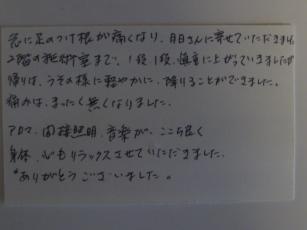 急に足のつけ根が痛くなり、
2階の施術室まで、1段、1段、慎重に上がっていきましたが
帰りは、うその様に軽やかに、降りることができました。
痛みは、まったく無くなりました。
アロマ、間接照明、音楽が、ここち良く
身体、心もリラックスさせていただきました。
ありがとうございました。